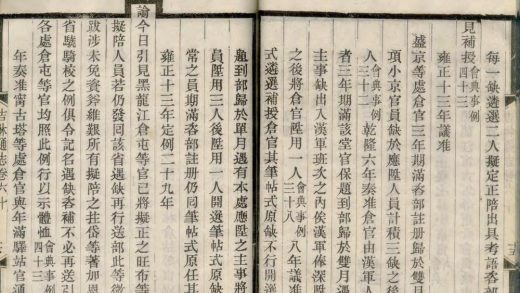 每一缺遴選二人擬定正陪出具考語咨部
見補授會典事例四十三
雍正十三年議准
盛京等處倉官三年期滿咨部註冊歸於雙月
項小京官員缺於應陞人員計積三缺之後
人會典事例三十二乾隆六年奏准倉官由漢軍人
者三年期滿該堂官保題到部歸於雙月遇
主事缺出入漢軍班次之內俟漢軍俸深陞
之後將倉官陞用一人會典事例三十八八年議准
式遴選補授倉官其筆帖式原缺不行開選
題到部歸於單月遇有本處應陞之主事將
員陞用三人後陞用一人開選筆帖式原缺
常之員期滿咨部註冊仍同筆帖式原任其
雍正十三年定例二十九年
諭今日引見黑龍江倉屯等官已將擬正之旺布等
擬陪人員若仍發回該省遇缺再行送部此等微
跋涉未免資斧維艱所有擬陪之挂岱等著加恩
省驍騎校之例俱令記名遇缺咨補不必再送引
各處倉屯等官均照此例行以示體恤會典事例四十三
年奏准甯古塔等處倉官與年滿驛站官通
吉林通志卷六十